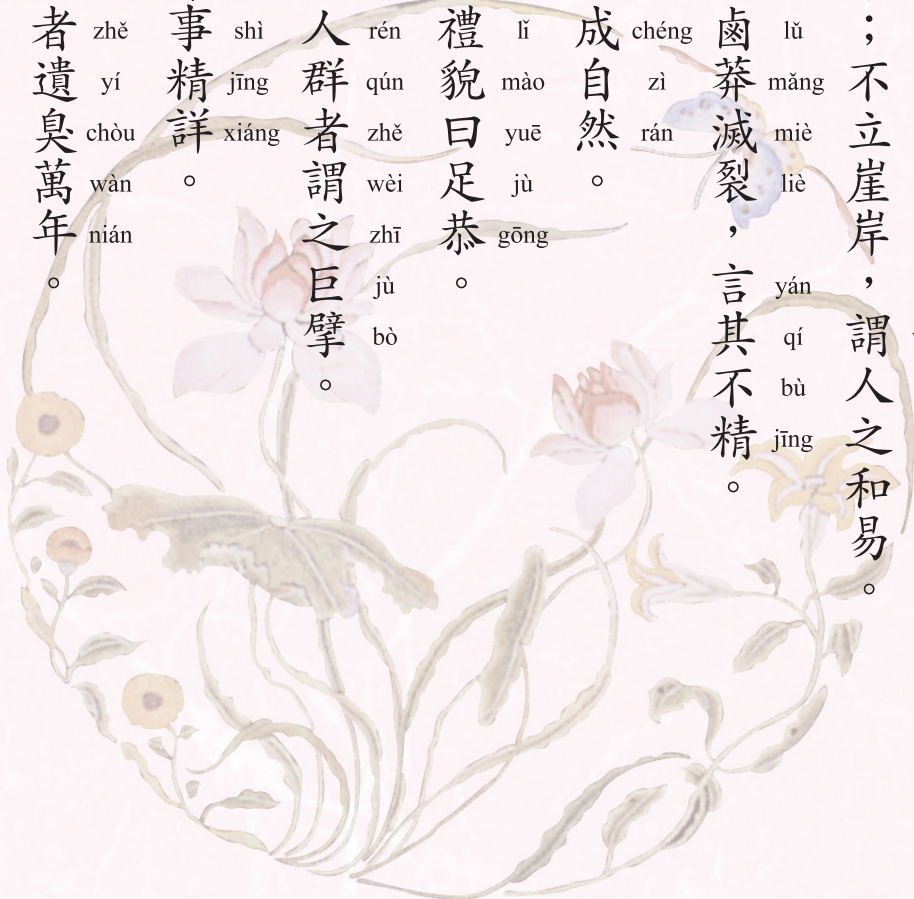 ；不立崖岸，謂人之和易。
鹵莽滅裂，言其不精。
lǔ mǎng miè liè yán qí bù jīng
成自然。
chéng zì rán
禮貌曰足恭。
lǐ mào yuē jù gōng
人群者謂之巨擘。
rén qún zhě wèi zhī jù bò
事精詳。
shì jīng xiáng
者遺臭萬年。
zhě yí chòu wàn nián